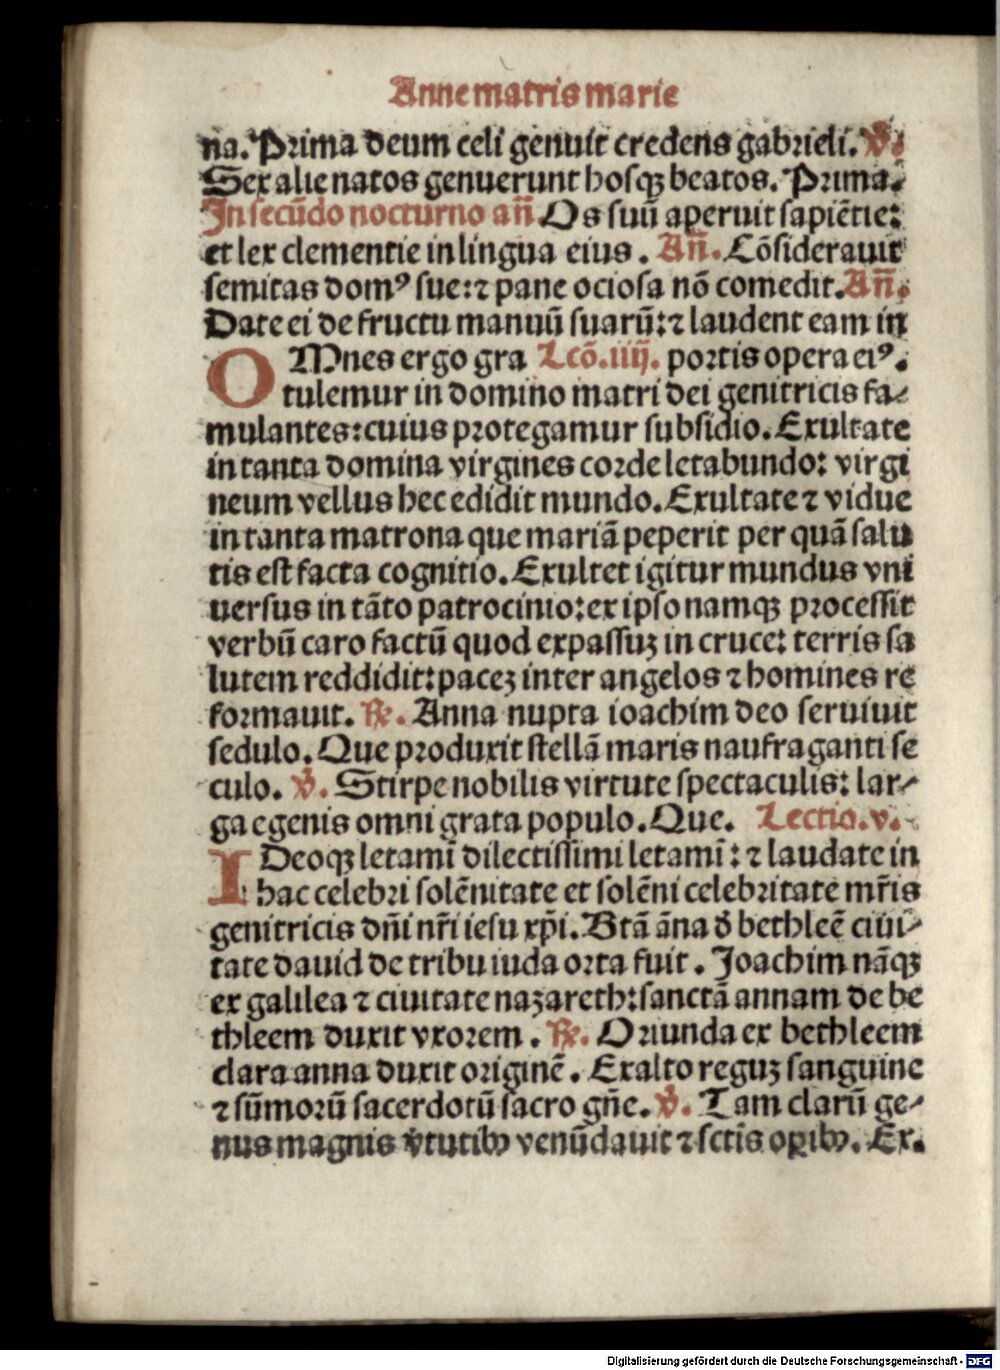 Anne matris marie
na. Prima deum celi genuit credens gabrieli. ℣.
Sex alie natos genuerunt hosqꝫ beatos. Prima.
In secūdo nocturno an̄. Os suū aperuit sapiētie:
et lex clementie in lingua eius. An̄. Cōsiderauit
semitas domꝰ sue: ⁊ pane ociosa nō comedit. An̄.
Date ei de fructu manuū suarū: ⁊ laudent eam in
OMnes ergo gra Lcō. iiij. portis opera eiꝰ.
tulemur in domino matri dei genitricis fa-
mulantes: cuius protegamur subsidio. Exultate
in tanta domina virgines corde letabundo: virgi
neum vellus hec edidit mundo. Exultate ⁊ vidue
in tanta matrona que mariā peperit per quā salu
tis est facta cognitio. Exultet igitur mundus vni
uersus in tāto patrocinio: ex ipso namqꝫ processit
verbū caro factū quod expassuꝫ in cruce: terris sa
lutem reddidit: paceꝫ inter angelos ⁊ homines re
formauit. ℟. Anna nupta ioachim deo seruiuit
sedulo. Que produxit stellā maris naufraganti se
culo. ℣. Stirpe nobilis virtute spectaculis: lar-
ga egenis omni grata populo. Que. Lectio. v.
IDeoqꝫ letamī dilectissimi letamī: ⁊ laudate in
hac celebri solēnitate et solēni celebritate mr̄is
genitricis dn̄i nr̄i iesu xp̄i. Btā āna đ bethleē ciui-
tate dauid de tribu iuda orta fuit. Joachim nāqꝫ
ex galilea ⁊ ciuitate nazareth: sanctā annam de be
thleem duxit vxorem. ℟. Oriunda ex bethleem
clara anna duxit originē. Exalto reguꝫ sanguine
⁊ sūmorū sacerdotū sacro gn̄e. ℣. Tam clarū ge-
nus magnis v̄tutibꝰ venūdauit ⁊ sctīs oꝑibꝰ. Ex.
Digitalisierung gefördert durch die Deutsche Forschungsgemeinschaft - DFG